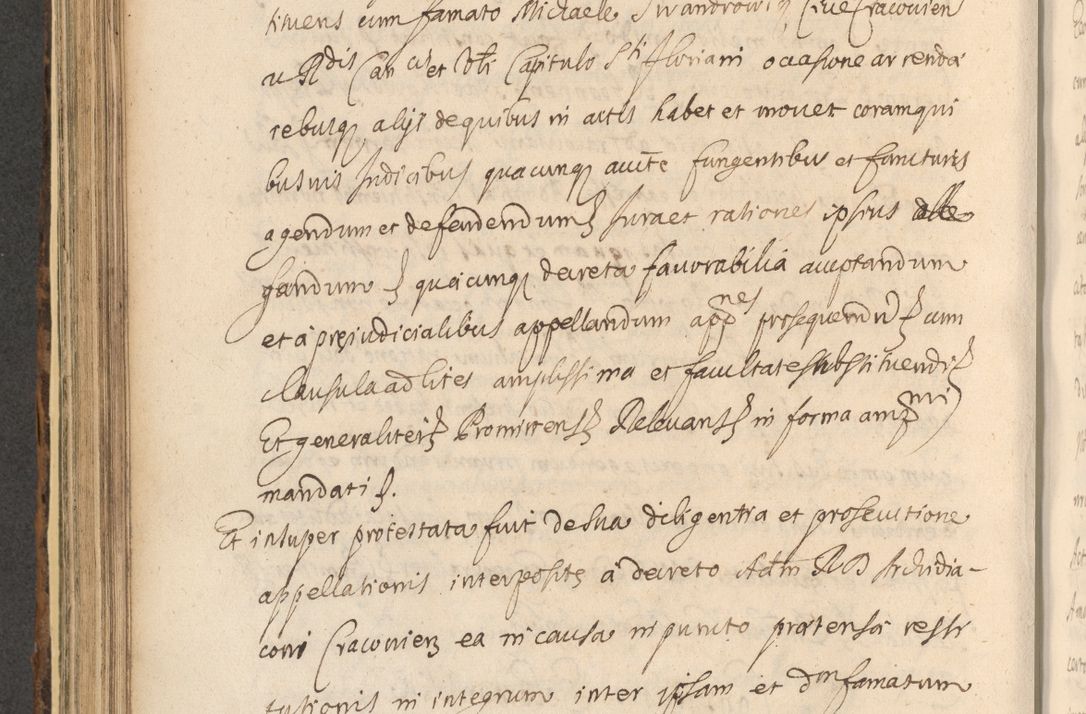 tituens cum famato Michaele Swandrowicz Cive Cracovien
a Rdis Cancis et Vbli Capitulo Sti Floriani occasione arrendæ
rebusq alijs de quibus in actis habet et movet coram qui
busuis Judicibus quacunq aucte fungentibus et functuris
agendum et defendendumq Jura et rationes ipsius alle
gandum q quæcunq decreta favorabilia acceptandum
et a præjudicialibus appellandum appnes prosequendũ q cum
clausula ad lites amplissima et facultate substituendi q
Et generaliter q Promittens q Relevans q in forma amplmi
mandati q.
Et insuper protestata fuit de sua diligentia et prosecutione
appellationis interpositæ a decreto Adm R D Archidia-
coni Cracovien ea in causa in puncto prætensæ resti
tutionis in integrum inter ipsam et dnm famatum